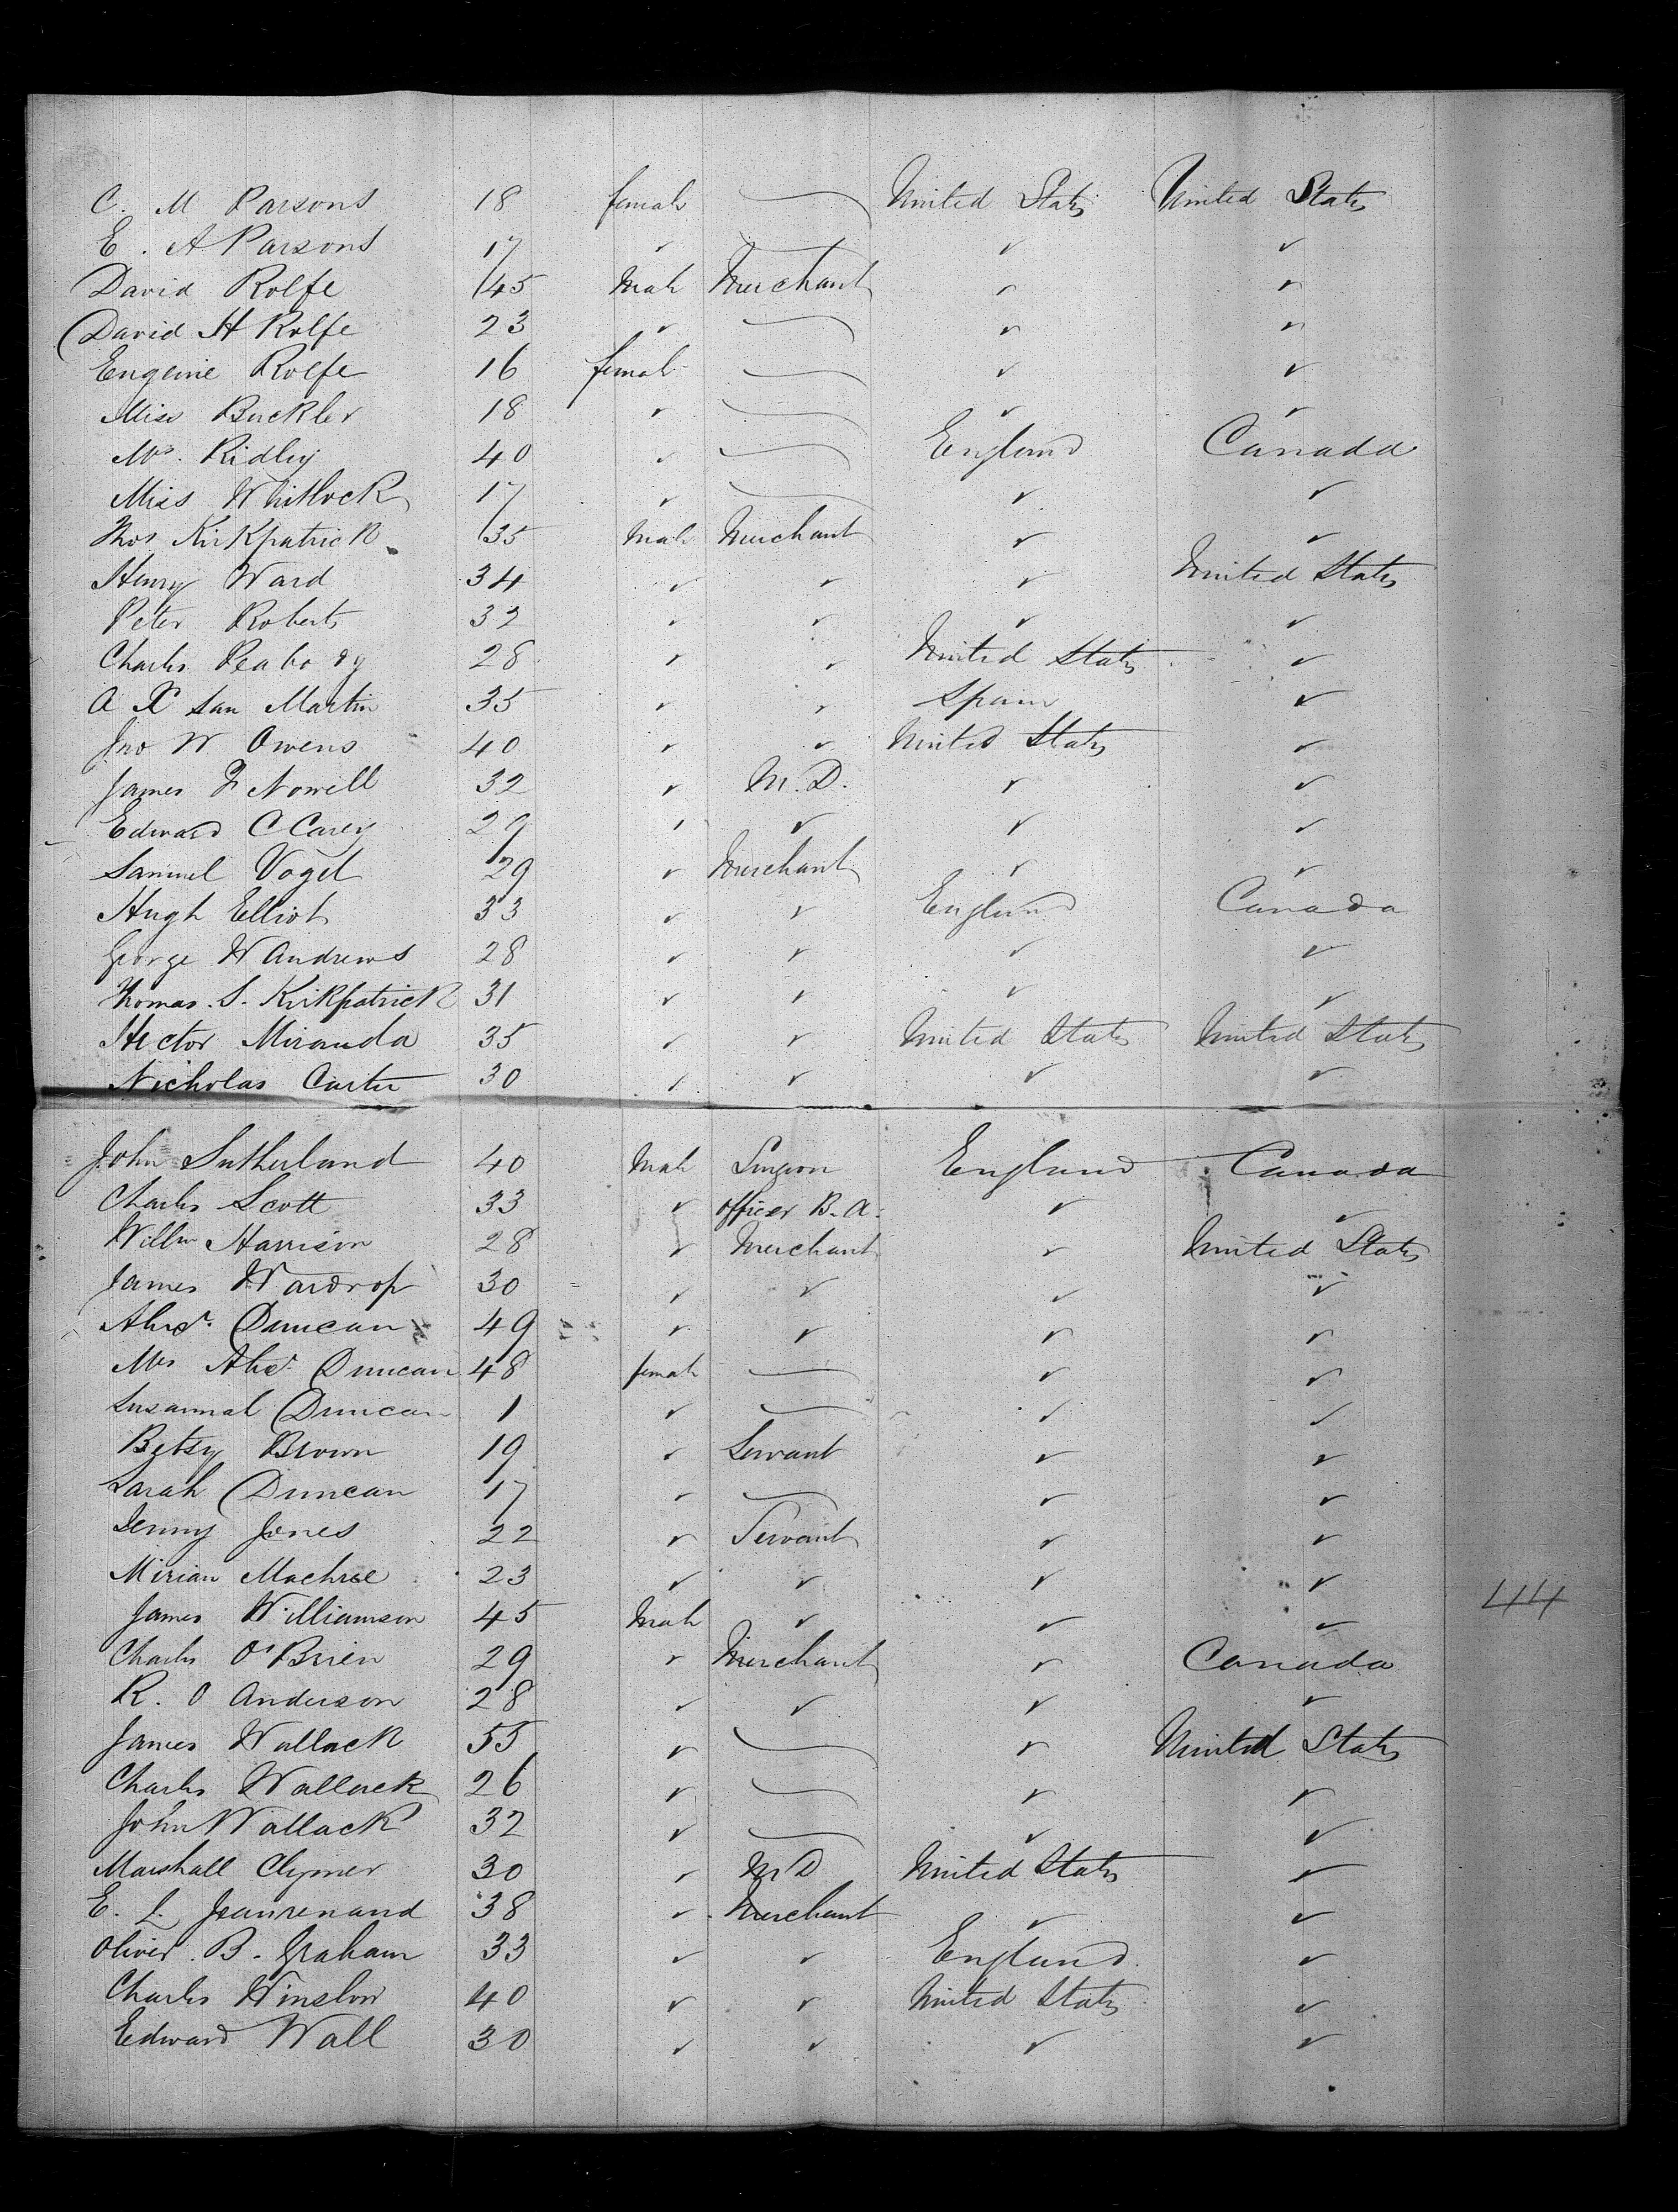 C. M Parsons 18 female United States United States
E. A Parsons 17 ✓ ✓ ✓
David Rolfe 45 Male Merchant ✓ ✓
David H Rolfe 23 ✓ ✓ ✓
Eugeine Rolfe 16 female ✓ ✓
Miss Buckler 18 ✓ ✓ ✓
Mrs. Ridley 40 ✓ England Canada
Miss Whitlock 17 ✓ ✓ ✓
Thos Kirkpatrick 35 Male Merchant ✓ ✓
Henry Ward 34 ✓ ✓ ✓ United States
Peter Roberts 32 ✓ ✓ ✓ ✓
Charles Peabody 28 ✓ ✓ United States ✓
A X San Martin 35 ✓ ✓ Spain ✓
Jno W Owens 40 ✓ ✓ United States ✓
James F Nowill 32 ✓ M.D. ✓ ✓
Edward C Carey 29 ✓ ✓ ✓ ✓
Samuel Vogel 29 ✓ Merchant ✓ ✓
Hugh Elliot 33 ✓ ✓ England Canada
George W Andrews 28 ✓ ✓ ✓ ✓
Thomas. S. Kirkpatrick 31 ✓ ✓ ✓ ✓
Hector Miranda 35 ✓ ✓ United States United States
Nicholas Carter 30 ✓ ✓ ✓ ✓
John Sutherland 40 Male Surgeon England Canada
Charles Scott 33 ✓ Officer B. A. ✓ ✓
Willm Harrison 28 ✓ Merchant ✓ United States
James Wardrop 30 ✓ ✓ ✓ ✓
Alexr. Duncan 49 ✓ ✓ ✓ ✓
Mrs Alexr Duncan 48 female ✓ ✓
Susannah Duncan 1 ✓ ✓ ✓
Betsy Brown 19 ✓ Servant ✓ ✓
Sarah Duncan 17 ✓ ✓ ✓
Jenny Jones 22 ✓ Servant ✓ ✓
Mirian Machree 23 ✓ ✓ ✓ ✓
James Williamson 45 Male ✓ ✓ ✓
Charles O'Brien 29 ✓ Merchant ✓ Canada
R. O Anderson 28 ✓ ✓ ✓ ✓
James Wallack 55 ✓ ✓ United States
Charles Wallack 26 ✓ ✓ ✓
John Wallack 32 ✓ ✓ ✓
Marshall Clymer 30 ✓ M D United States ✓
E. L. Jeanrenaud 38 ✓ Merchant ✓ ✓
Oliver. B. Graham 33 ✓ ✓ England ✓
Charles Winslow 40 ✓ ✓ United States ✓
Edward Wall 30 ✓ ✓ ✓ ✓